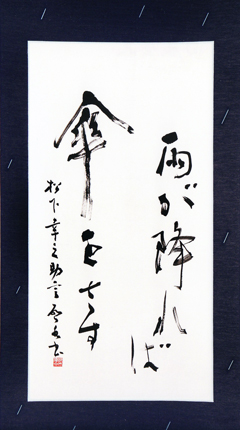 雨が降れば
傘をさす
松下幸之助言